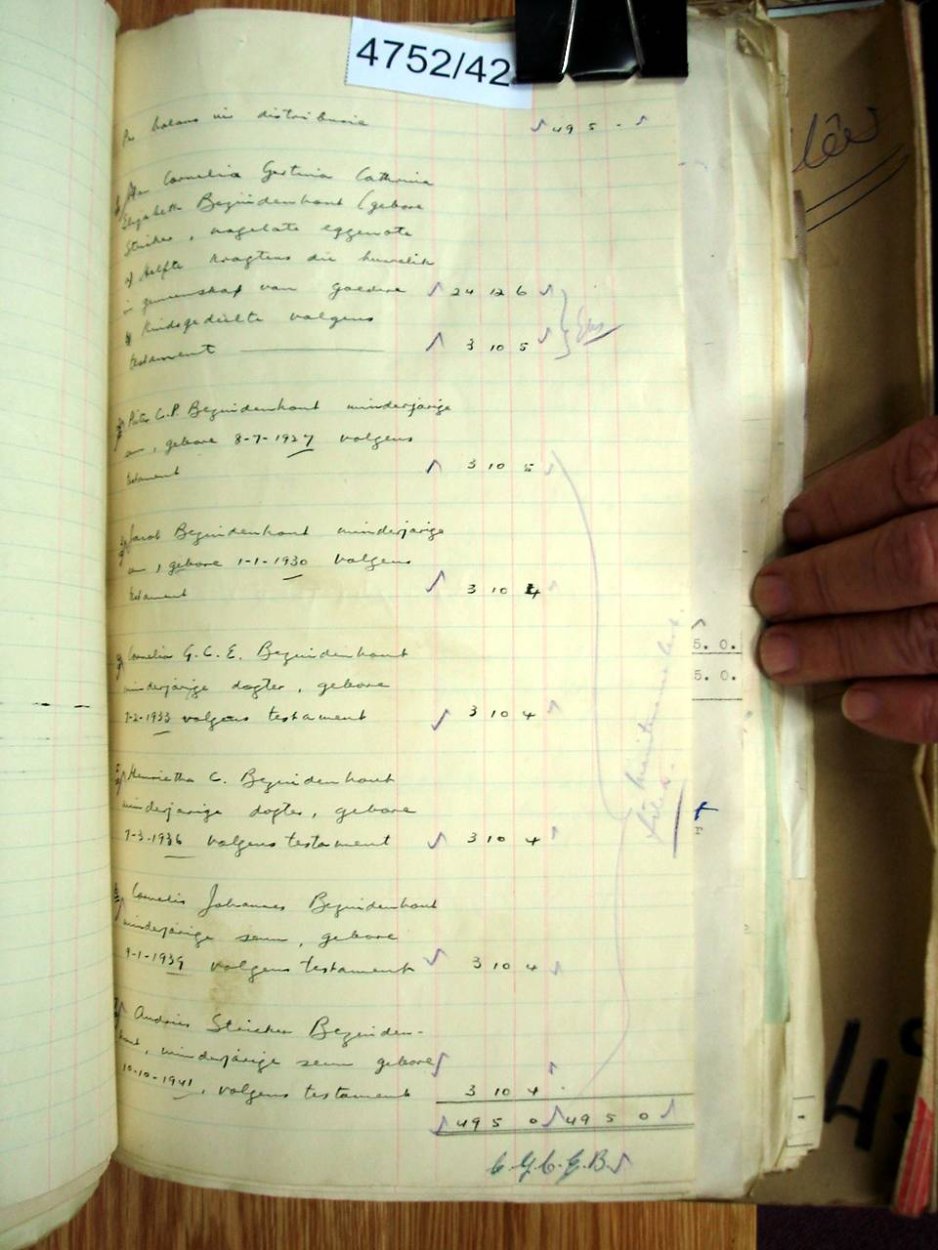 4752/42
Per balans vir distribusie 49 5 -
Aan Cornelia Gertina Cathrina
Elizabeth Bezuidenhout (gebore
Steicher, nagelate eggenote
helfte kragtens die huwelik
in gemeenskap van goedere 24 12 6
kindsgedeelte volgens
testament 3 10 5
Pieter C.P. Bezuidenhout minderjarige
seun, gebore 8-7-1927 volgens
testament 3 10 5
Jacob Bezuidenhout minderjarige
seun, gebore 1-1-1930 volgens
testament 3 10 4
Cornelia G.C.E. Bezuidenhout
5. 0.
minderjarige dogter, gebore
5. 0.
7-2-1933 volgens testament 3 10 4
Henrietha C. Bezuidenhout
minderjarige dogter, gebore
7-3-1936 volgens testament 3 10 4
Cornelis Johannes Bezuidenhout
minderjarige seun, gebore
9-1-1939 volgens testament 3 10 4
Andries Steicher Bezuiden-
hout, minderjarige seun gebore
10-10-1941, volgens testament 3 10 4
49 5 0 49 5 0
C.G.C.E.B.